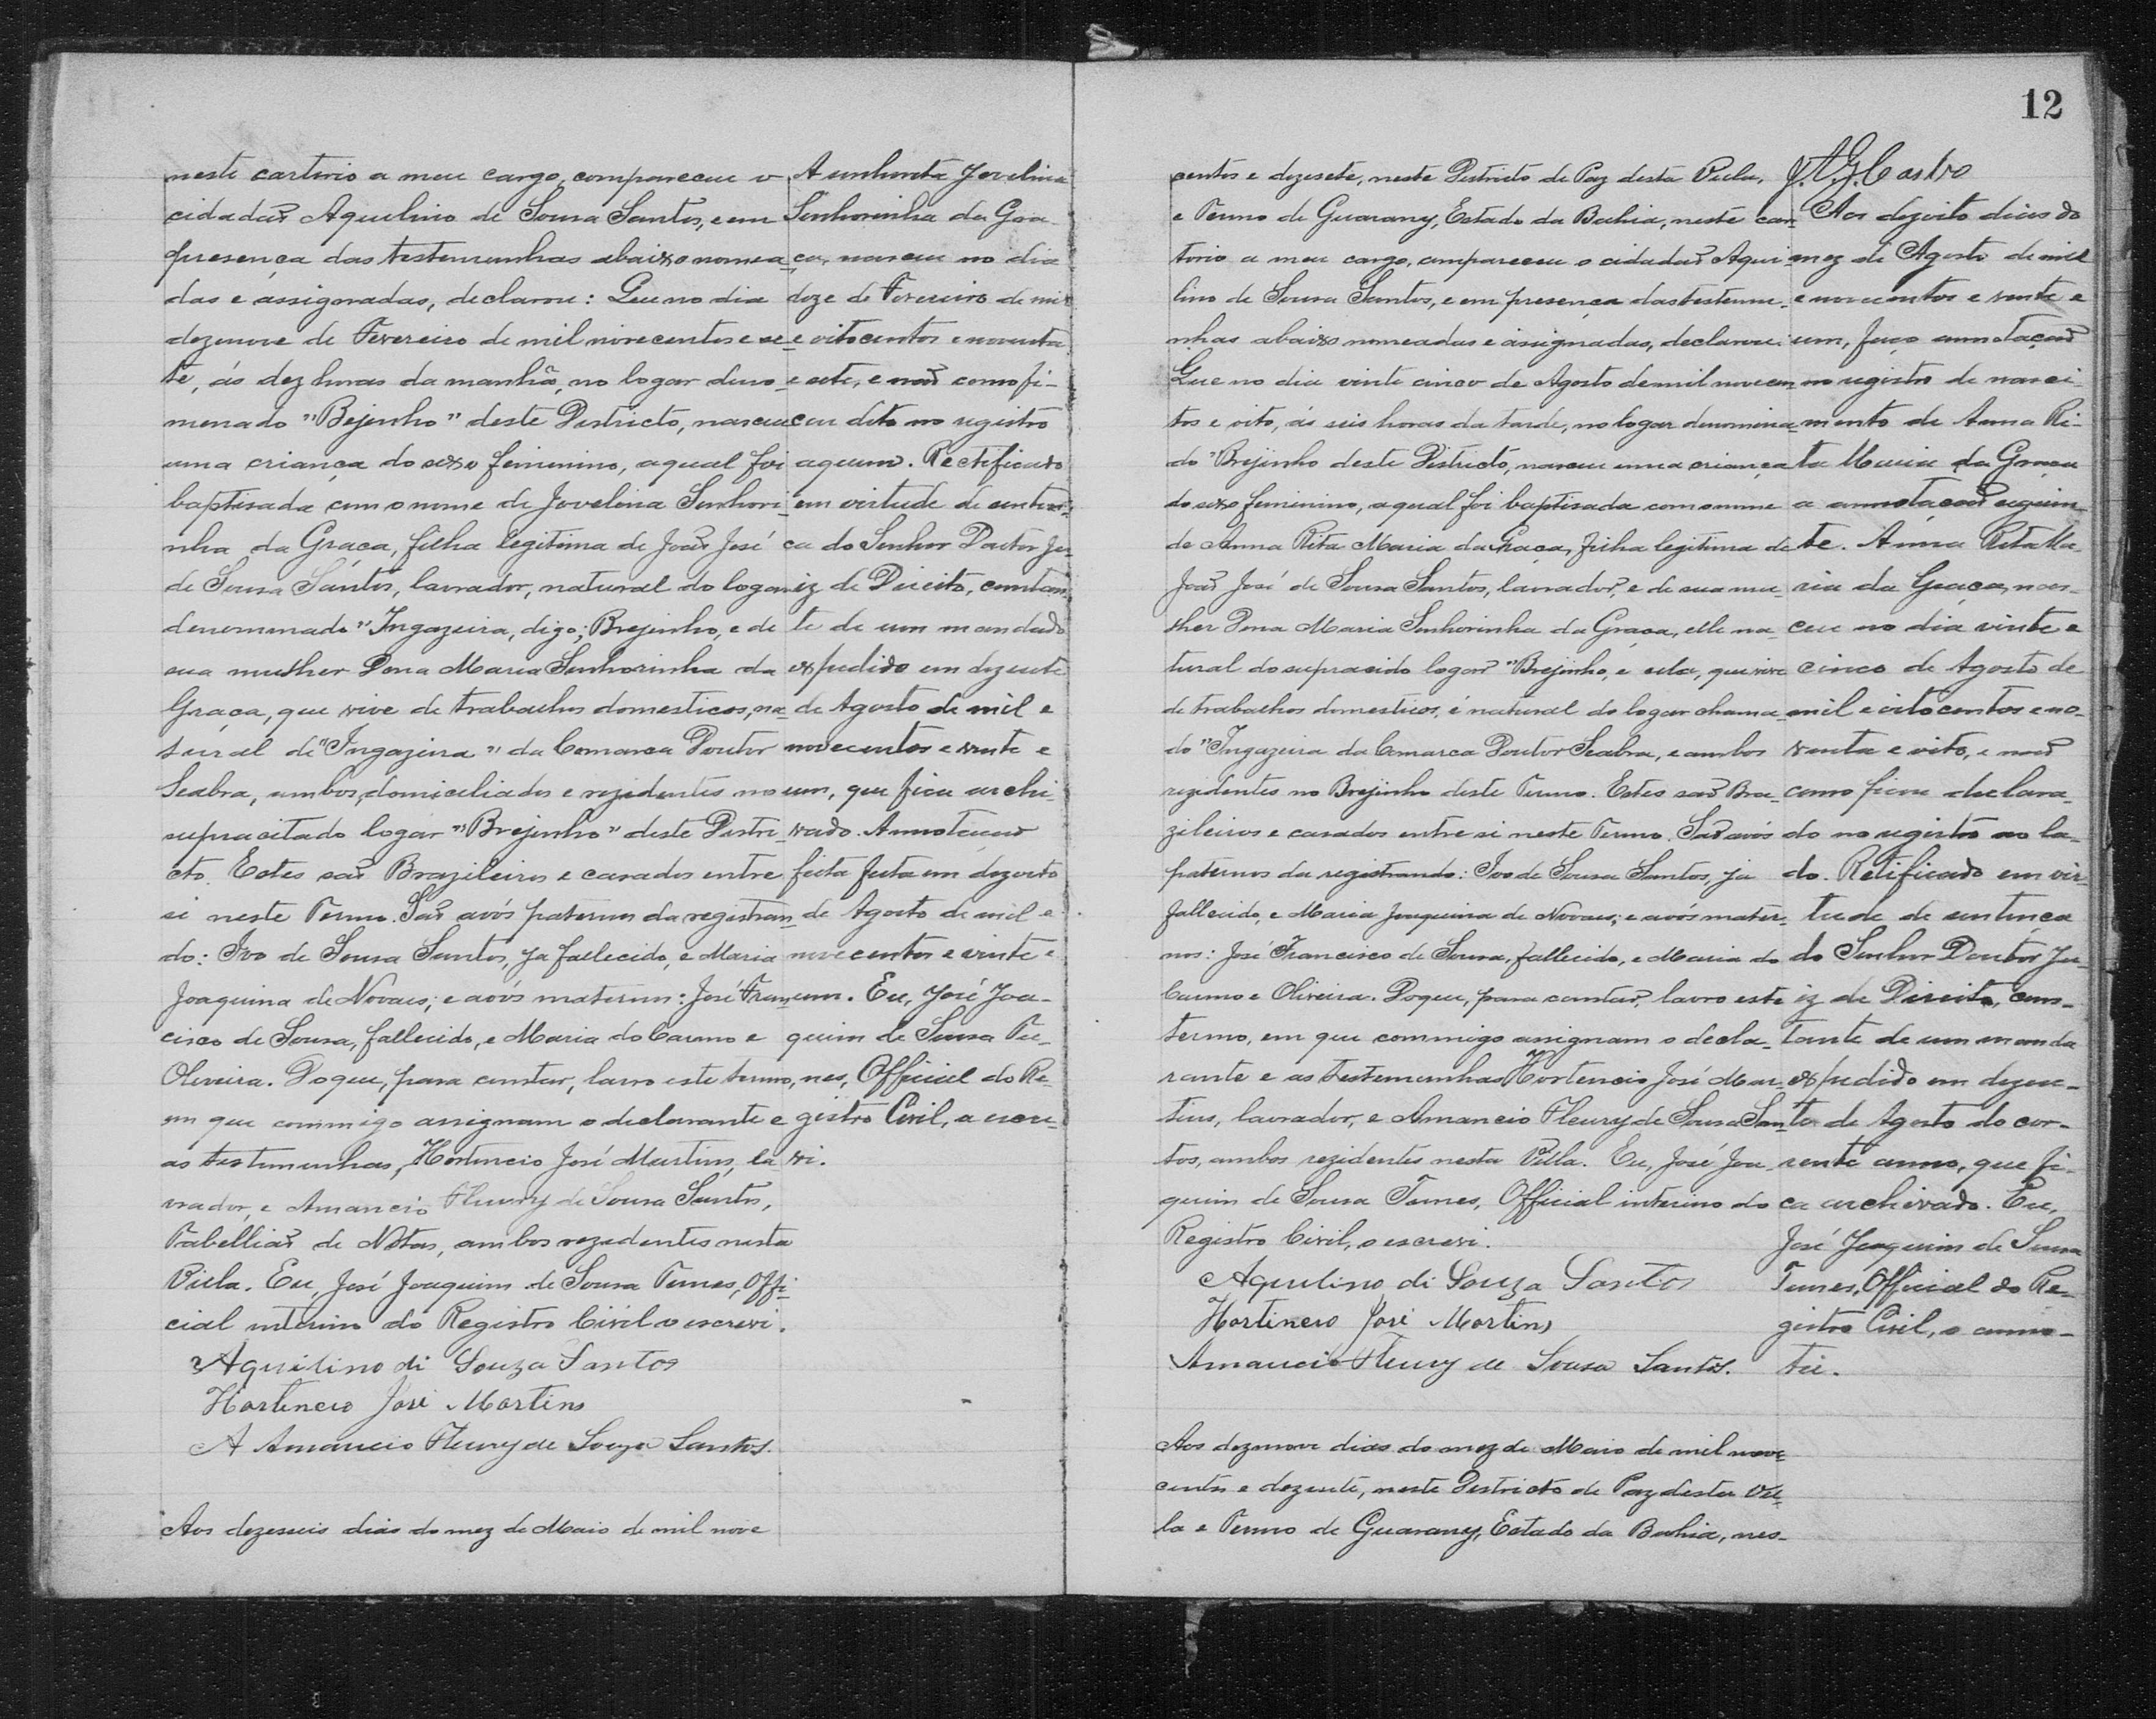 neste cartorio a meu cargo, compareceu o
cidadaõ Aquelino de Sousa Santos, e em
presença das testemunhas abaixo nomea-
das e assignadas, declarou: Que no dia
dezenove de Fevereiro de mil novecentos e se-
te, ás dez horas da manhã, no logar deno-
menado "Bejinho" deste Districto, nasceu
uma criança do sexo feminino, a qual foi
baptisada com o nome de Jovelina Senhori-
nha da Graça, filha legitima de Joaõ José
de Sousa Santos, lavrador, natural do logar
denominado "Ingazeira, digo; Brejinho, e de
sua mulher Dona Maria Senhorinha da
Graça, que vive de trabalhos domesticos, na-
tural de "Ingazeira" da Comarca Doutor
Seabra, ambos, domiciliados e rezidentes no
supracitado logar "Brejinho" deste Distri-
cto. Estes saõ Brazileiros e casados entre
si neste Termo. Saõ avós paternos da registran-
do: Ivo de Sousa Santos, ja fallecido, e Maria
Joaquina de Novaes; e avós maternos: José Fran-
cisco de Sousa, fallecido, e Maria do Carmo e
Oliveira. Do que, para constar, lavro este termo,
em que commigo assignam o declarante e
as testemunhas, Hortencio José Martins, la
vrador, e Amancio Fleury de Sousa Santos,
Tabelliaõ de Notas, ambos rezidentes nesta
Villa. Eu, José Joaquim de Sousa Tunes, Offi-
cial interino do Registro Civil o escrevi.
Aquilino di Souza Santos
Hortencio José Martins
A Amancio Fleury de Souza Santos.
Aos dezesseis dias do mez de Maio de mil nove
Jovelina
Senhorinha da Gra-
ça, nasceu no dia
doze de Fevereiro de mil
e oitocentos e noventa
e sete, e naõ como fi-
cou dito no registro
aqueno. Rectificado
em virtude de senten-
ça do Senhor Doutor Ju-
iz de Direito, constan-
te de um mandado
expedido em dezesete
de Agosto de mil e
novecentos e vinte e
um, que fica archi-
vado. Annotacaõ
feita feita em dezoito
de Agosto de mil e
novecentos e vinte e
um. Eu, José Joa-
quim de Sousa Tu-
nes, Official do Re-
gistro Civil, a escre-
vi.
12
centos e dezesete, neste Districto de Paz desta Villa,
e Termo de Guarany, Estado da Bahia, neste car-
torio a meu cargo, compareceu o cidadaõ Aqui-
lino de Sousa Santos, e em presença das testemu-
nhas abaixo nomeadas e assignadas, declarou:
Que no dia vinte cinco de Agosto de mil novecen
tos e oito, ás seis horas da tarde, no logar denomina-
do "Brejinho deste Districto, nasceu uma criança
do sexo feminino, a qual foi baptisada com o nome
de Anna Rita Maria da Graça, filha legitima de
Joaõ José de Sousa Santos, lavrador, e de sua mu-
lher Dona Maria Senhorinha da Graça, elle na-
tural do supracido logar "Brejinho, e ella, que vive
de trabalhos domesticos, é natural do logar chama-
do "Ingazeira da Comarca Doutor Seabra, e ambos
rezidentes no Brejinho deste Termo. Estes saõ Bra-
zileiros e casados entre si neste Termo. Saõ avós
paternos da registrando: Ivo de Sousa Santos, ja
fallecido, e Maria Joaquina de Novaes; e avós mater-
nos: José Francisco de Sousa, fallecido, e Maria do
Carmo e Oliveira. Do que, para constar, lavro este
termo, em que commigo assignam o decla-
rante e as testemunhas Hortencio José Mar-
tins, lavrador, e Amancio Fleury de Sousa San-
tos, ambos rezidentes nesta Villa. Eu, José Joa
quim de Sousa Tunes, Official interino do
Registro Civil, o escrevi.
Aquilino di Souza Santos
Hortinceo José Martins
Amancio Fleury de Sousa Santos.
Aos dezenove dias do mez de Maio de mil nove-
centos e dezesete, neste Districto de Paz desta Vil-
la e Termo de Guarany, Estado da Bahia, nes-
Castro
Aos dezoito dias do
mez de Agosto de mil
e novecentos e vinte e
um, faço annotaçaõ
no registro de nasci-
mento de Anna Ri-
ta Maria da Graça
a annotaçaõ seguin-
te. Anna Rita Ma-
ria da Graça, nas-
ceu no dia vinte e
cinco de Agosto de
mil e oitocentos e no-
venta e oito, e naõ
como ficou declara-
do no registro ao la-
do. Retificado em vir-
tude de sentença
do Senhor Doutor Ju-
iz de Direito, cons-
tante de um manda
expedido em dezese-
te de Agosto do cor-
rente anno, que fi-
ca archivado. Eu,
José Joaquim de Sousa
Tunes, Official do Re-
gistro Civil, o anno-
tei.